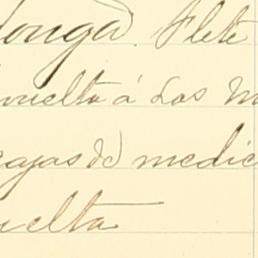 longa). Flete
vuelta á Los M
cajas de medic
uelta